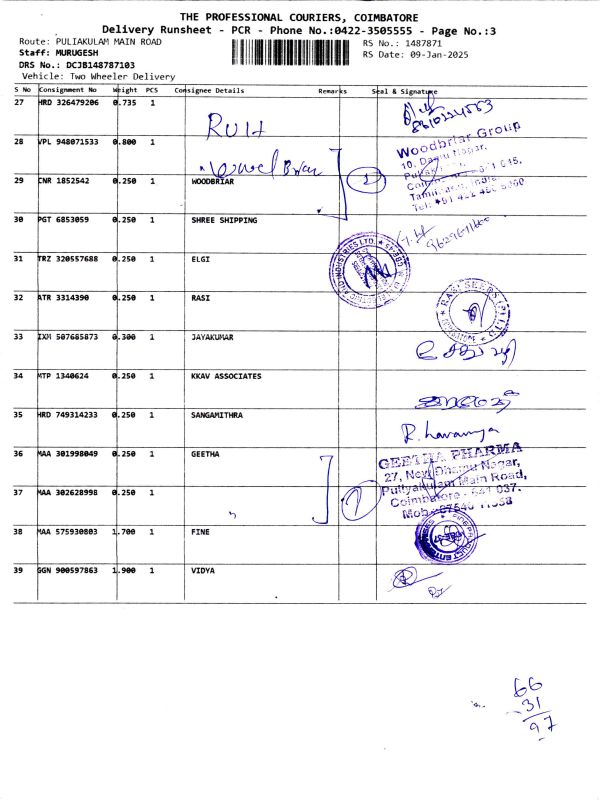 THE PROFESSIONAL COURIERS, COIMBATORE
Delivery Runsheet - PCR - Phone No.:0422-3505555 - Page No.:3
Route: PULIAKULAM MAIN ROAD
RS No.: 1487871
Staff: MURUGESH
RS Date: 09-Jan-2025
DRS No.: DCJB148787103
Vehicle: Two Wheeler Delivery
S No Consignment No Weight PCS Consignee Details Remarks Seal & Signature
27 HRD 326479206 0.735 1
28 VPL 948071533 0.800 1
Woodbriar Group
29 CNR 1852542 0.250 1 WOODBRIAR 2
30 PGT 6853059 0.250 1 SHREE SHIPPING
31 TRZ 320557688 0.250 1 ELGI
32 ATR 3314390 0.250 1 RASI
33 IXM 507685873 0.300 1 JAYAKUMAR
34 MTP 1340624 0.250 1 KKAV ASSOCIATES
35 HRD 749314233 0.250 1 SANGAMITHRA
R. Lavanya
36 MAA 301998049 0.250 1 GEETHA
GEETHA PHARMA
27, New Dhamu Nagar,
Puliyakulam Main Road,
Coimbatore - 641 037.
37 MAA 302628998 0.250 1 "
38 MAA 575930803 1.700 1 FINE
39 GGN 900597863 1.900 1 VIDYA
66
31
97